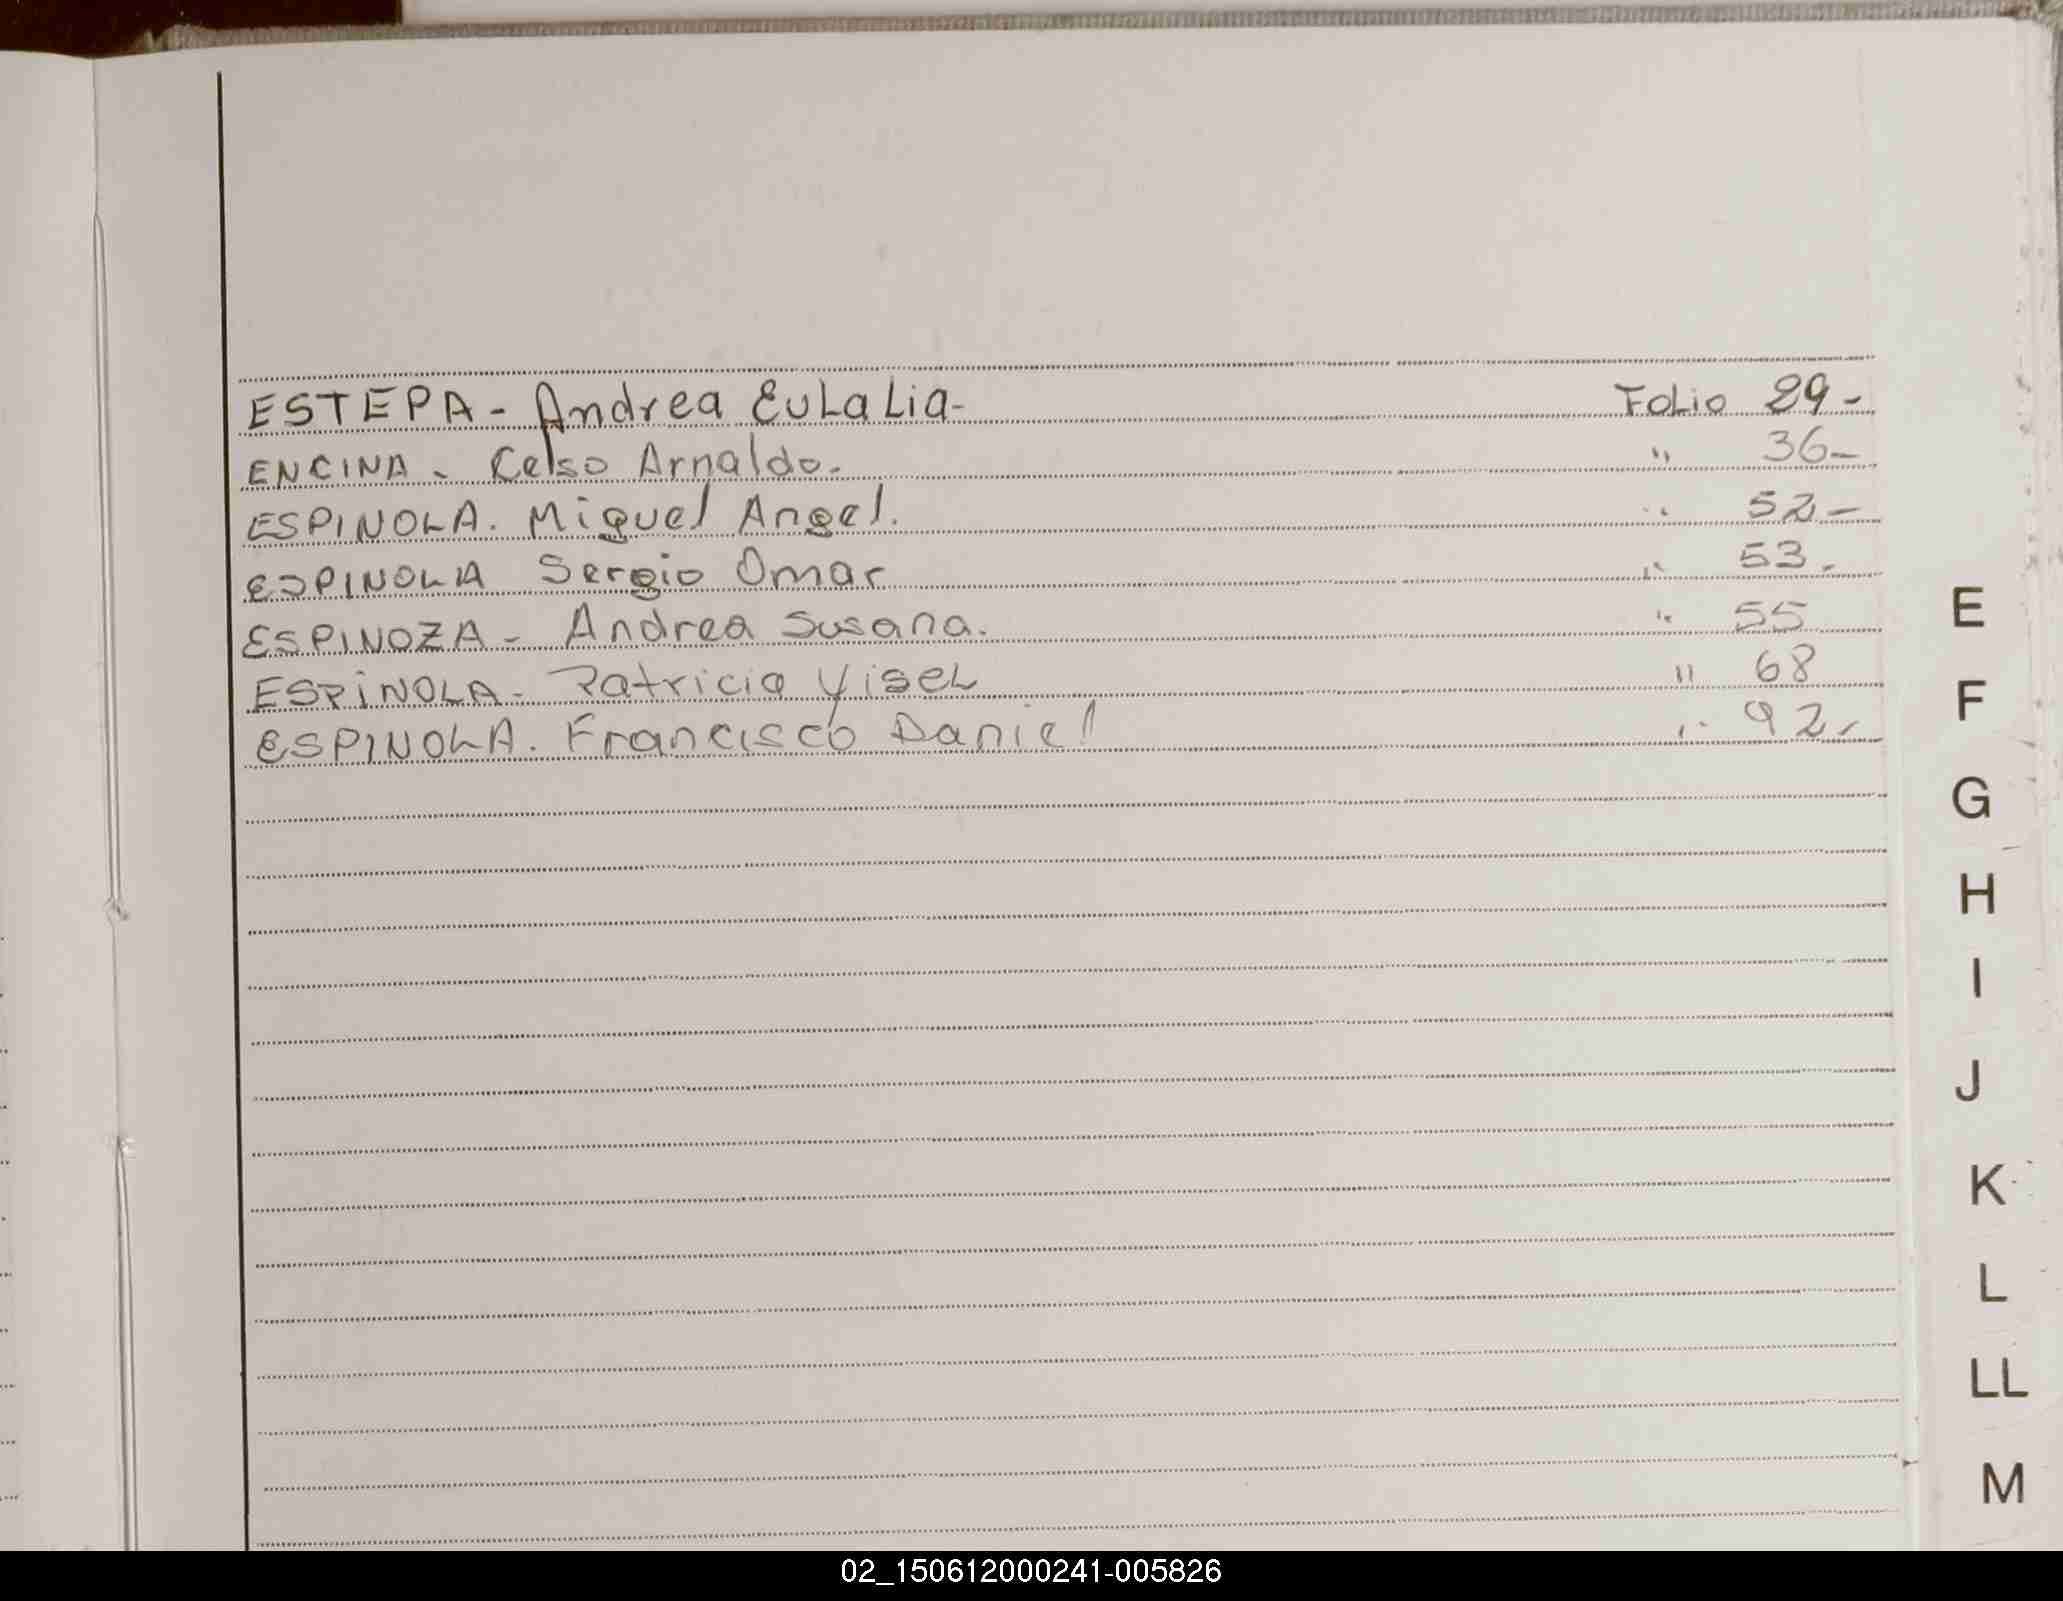 ESTEPA - Andrea EuLaLia- FoLio 29-
ENCINA - Celso Arnaldo. " 36-
ESPINOLA. Miguel Angel. " 52-
ESPINOLA Sergio Omar " 53.
ESPINOZA - Andrea Susana. " 55
ESPINOLA - Patricia YiseL " 68
ESPINOLA. Francisco Daniel " 92.
E
F
G
H
I
J
K
L
LL
M
02_150612000241-005826